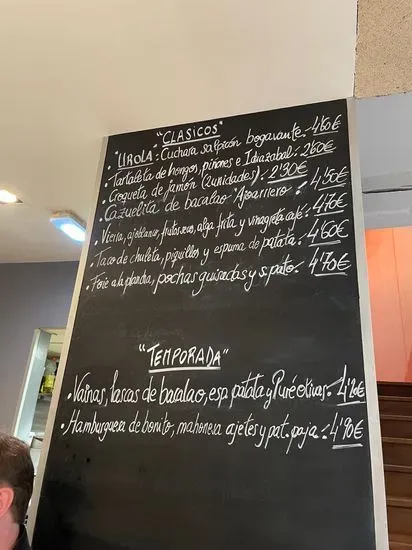 "CLASICOS"
"LIROLA": Cuchara salpicón bogavante: 4'60€
• Tartaleta de hongos, piñones e Idiazabal: 2'60€
• Croqueta de jamón (2 unidades): 2'30€
• Cazuelita de bacalao "Ajoarriero": 4'50€
• Vieira, ajoblanco, frutos secos, alga frita y vinagreta café: 4'70€
• Taco de chuleta, piquillos y espuma de patata: 4'60€
• Foie a la plancha, pochas guisadas y s. pato: 4'70€
"TEMPORADA"
• Vainas, lascas de bacalao, esp. patata y Puré olivas: 4'20€
• Hamburguesa de bonito, mahonesa ajetes y pat. paja: 4'90€